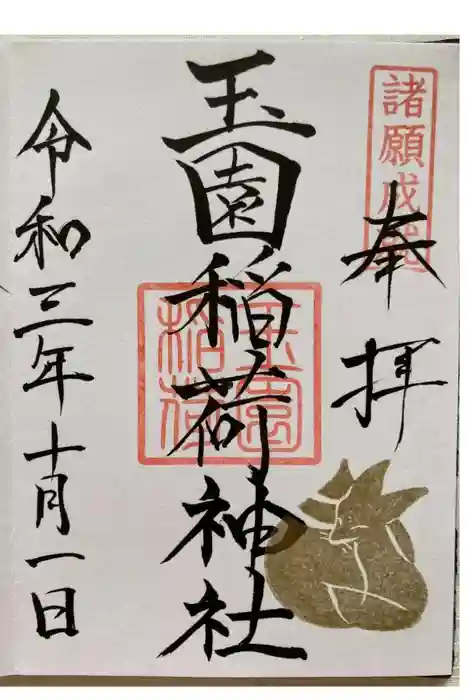 諸願成就
奉拝
玉園稲荷神社
玉園稲荷
令和三年十月一日